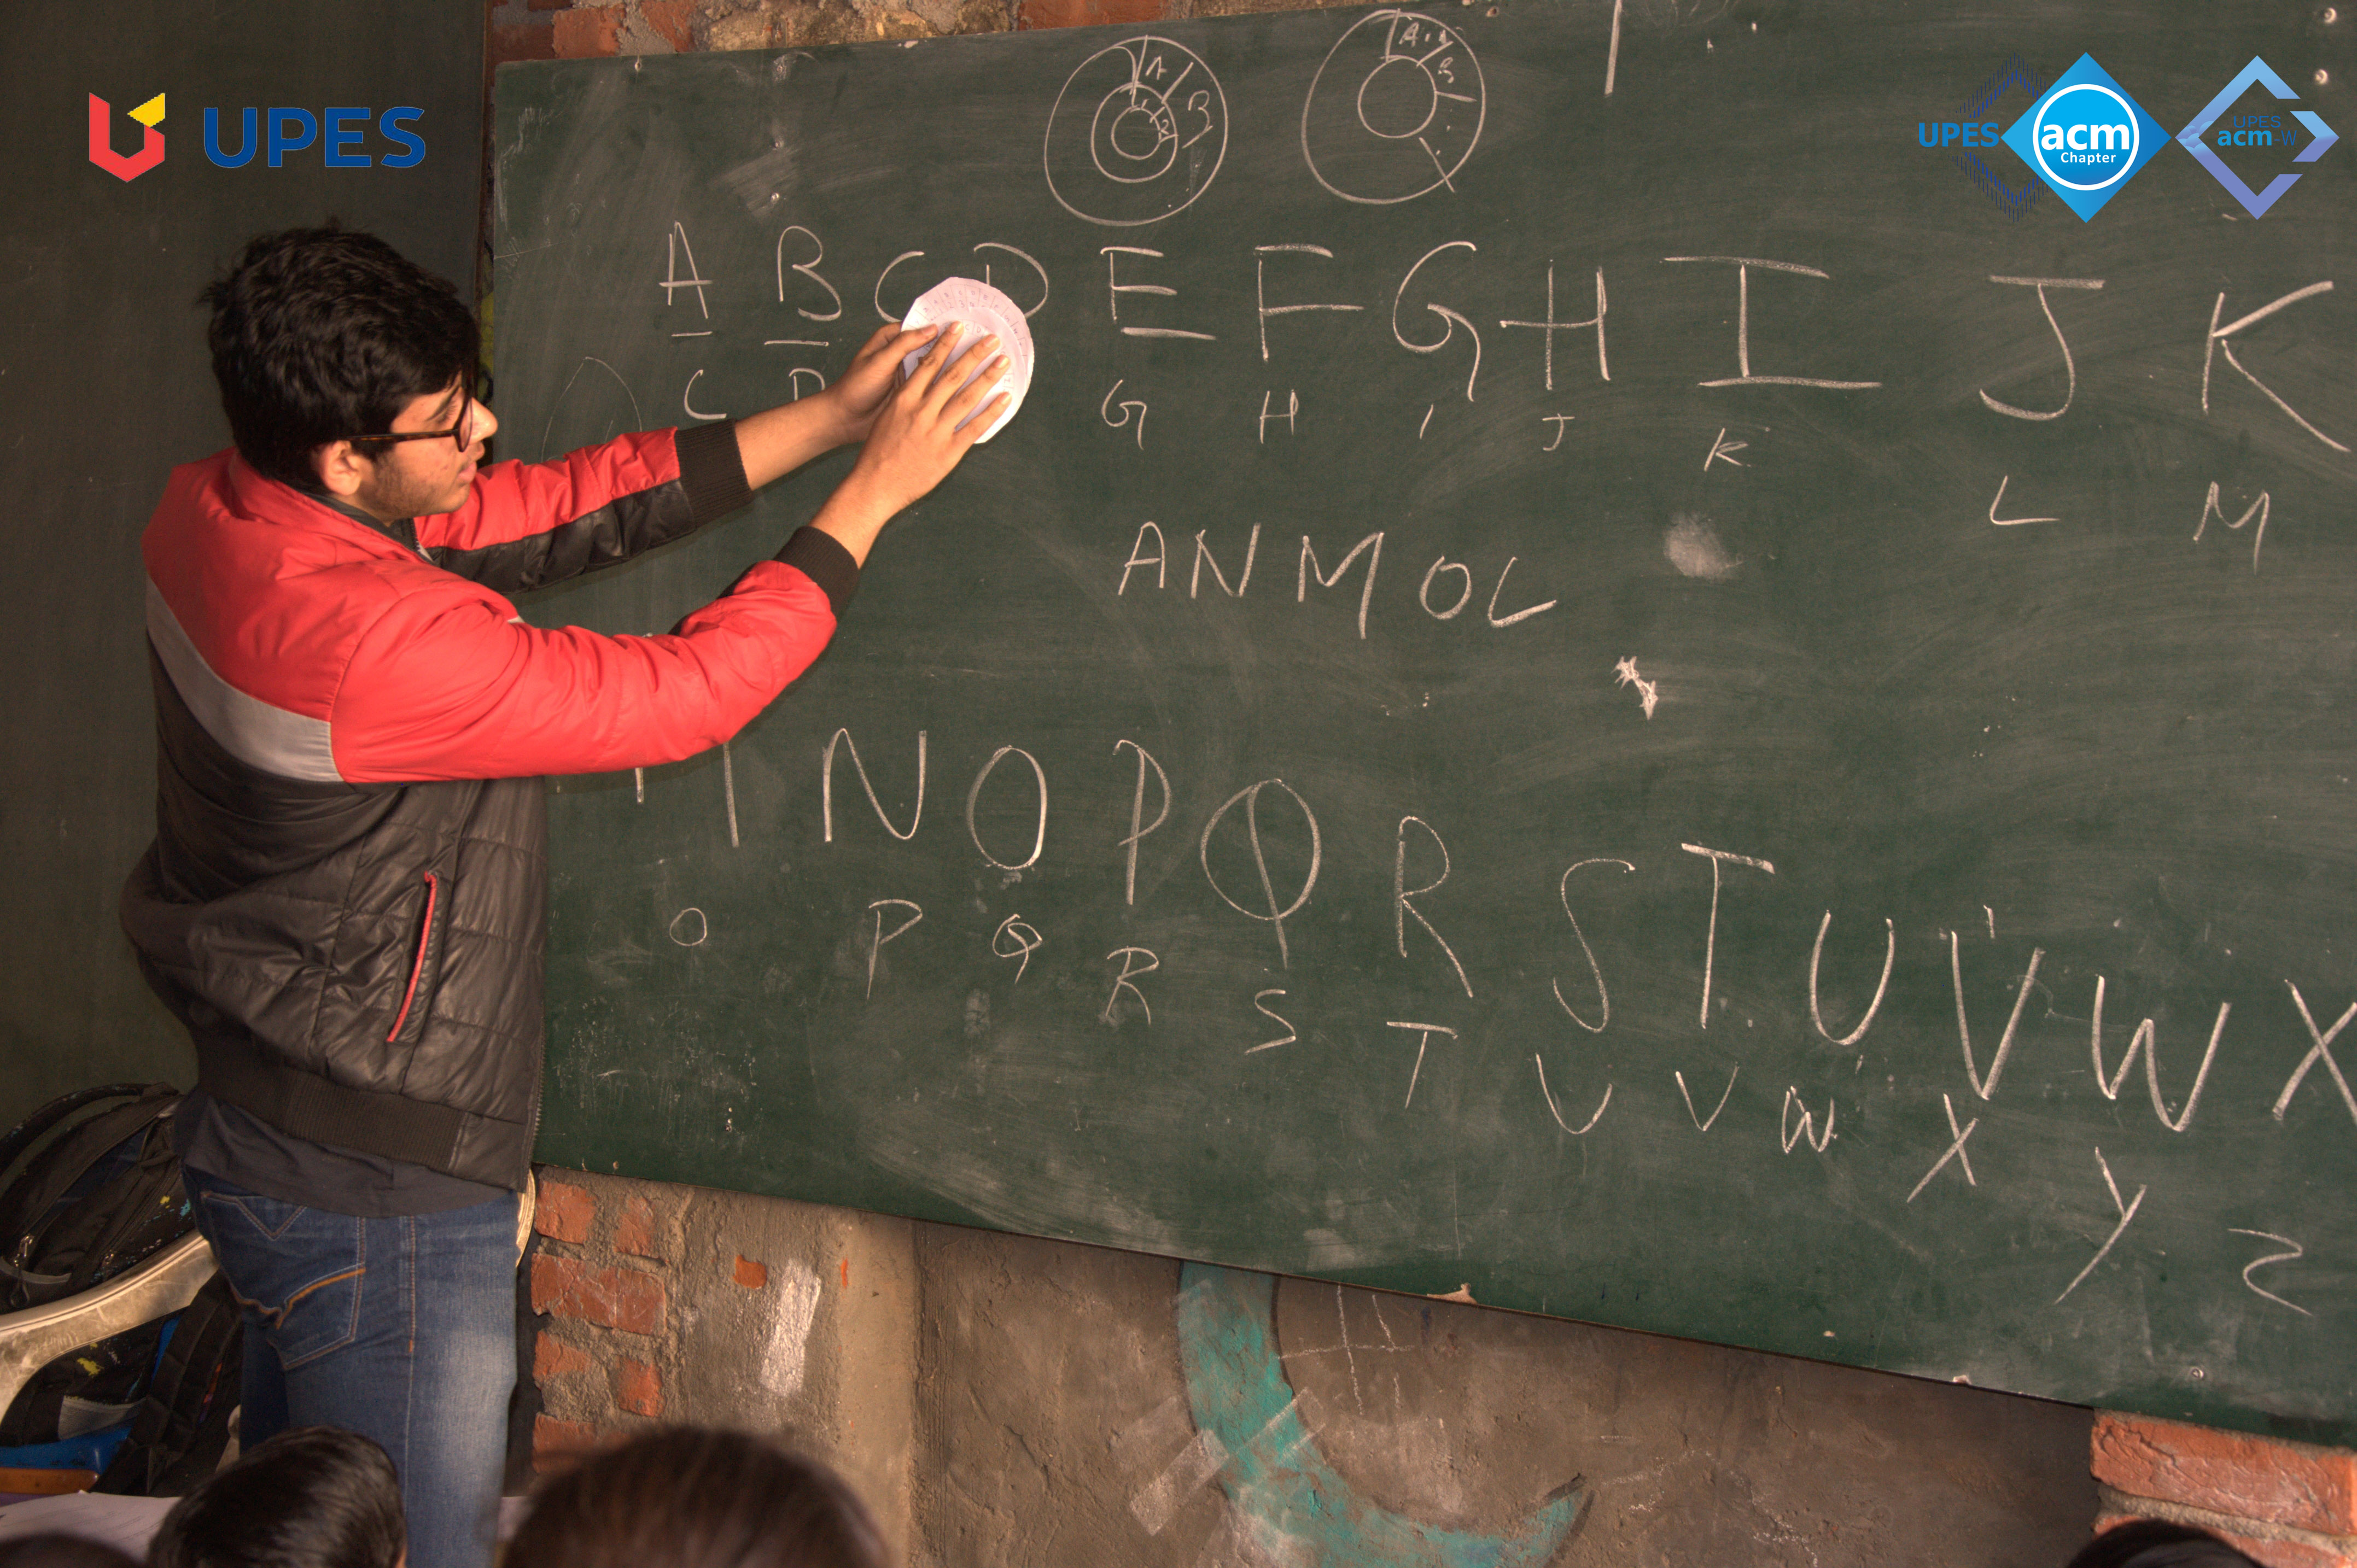 UPES
UPES acm Chapter
UPES acm-w
A B
A B
A B C D E F G H I J K
C D G H I J K L M
ANMOL
N O P Q R S T U V W X
O P Q R S T U V W X Y Z